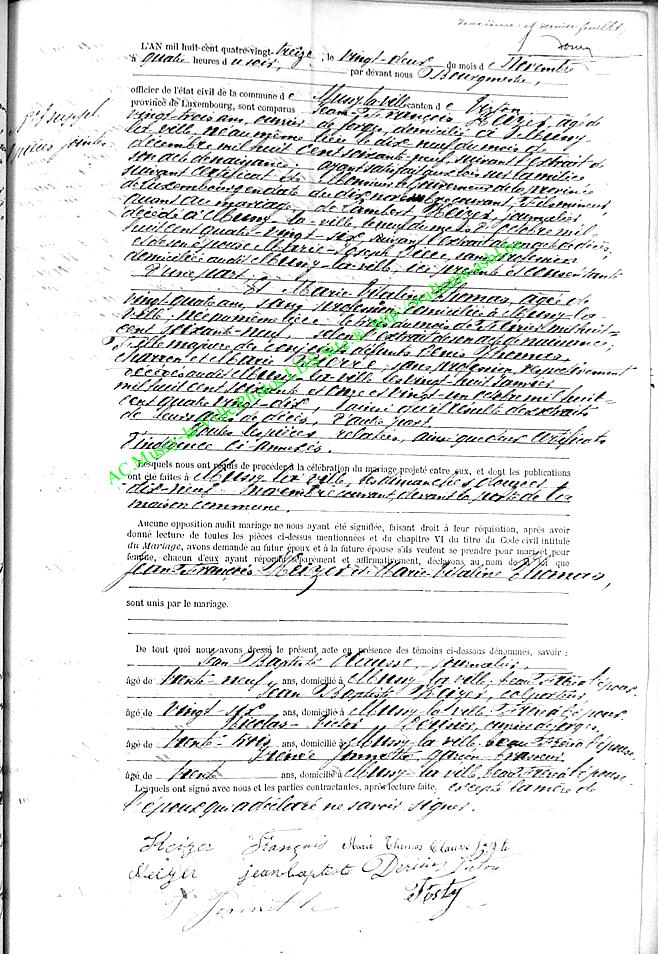 deuxième et dernier feuillet
L'AN mil huit cent quatre-vingt-treize, le vingt-deux du mois de Novembre
à quatre heures du soir, par devant nous Bourgmestre,
officier de l'état civil de la commune de Mussy-la-ville canton de Virton
province de Luxembourg, sont comparus Jean-François Reizer, âgé de
vingt-trois ans, ouvrier de forges, domicilié à Mussy-
la-ville, né au même lieu le dix-neuf du mois de
décembre mil huit cent soixante-neuf, suivant l'extrait de
son acte de naissance, ayant satisfait aux lois sur la milice
suivant certificat de Monsieur le Gouverneur de la province
de Luxembourg en date du dix novembre courant, fils mineur,
quant au mariage de Lambert Reizer, journalier
décédé à Mussy-la-ville, le neuf du mois d'octobre mil
huit cent quatre-vingt-six, suivant l'extrait de son acte de décès,
et de son épouse Marie-Joseph sans profession
domiciliée audit Mussy-la-ville, ici présente et consentante
d'une part.
Et Marie-Vitaline Thomas, âgée de
vingt-quatre ans, sans profession, domiciliée à Mussy-la-
ville, née au même lieu le du mois de février mil huit-
cent soixante-neuf, selon l'extrait de son acte de naissance;
fille majeure des conjoints défunts Denis Thomas,
charron et Marie sans profession, respectivement
décédés audit Mussy-la-ville le vingt-huit janvier
mil huit cent soixante et onze et vingt-un octobre mil huit-
cent quatre-vingt-dix, ainsi qu'il résulte des extraits
de leurs actes de décès, d'autre part.
Toutes les pièces relatées, ainsi que deux certificats
d'indigence ci-annexés.
Lesquels nous ont requis de procéder à la célébration du mariage projeté entre eux, et dont les publications
ont été faites à Mussy-la-ville, les dimanches douze et
dix-neuf novembre courant, devant la porte de la
maison commune.
Aucune opposition audit mariage ne nous ayant été signifiée, faisant droit à leur réquisition, après avoir
donné lecture de toutes les pièces ci-dessus mentionnées et du chapitre VI du titre du Code civil intitulé
du Mariage, avons demandé au futur époux et à la future épouse s'ils veulent se prendre pour mari et pour
femme, chacun d'eux ayant répondu séparément et affirmativement, déclarons au nom de la loi que
Jean-François Reizer et Marie-Vitaline Thomas,
sont unis par le mariage.
De tout quoi nous avons dressé le présent acte en présence des témoins ci-dessous dénommés, savoir :
Jean Baptiste Clausse, journalier,
âgé de trente-neuf ans, domicilié à Mussy-la-ville, beau-frère de l'époux
Jean Baptiste Reizer, colporteur
âgé de vingt-six ans, domicilié à Mussy-la-ville, frère de l'époux
Nicolas-Victor ouvrier de forges,
âgé de trente-trois ans, domicilié à Mussy-la-ville, beau-frère de l'épouse
âgé de trente ans, domicilié à Mussy-la-ville, beau-frère de l'épouse.
Lesquels ont signé avec nous et les parties contractantes, après lecture faite, excepté la mère de
l'époux qui a déclaré ne savoir signer.
Reizer François Marie Thomas Clausse
Reizer jean baptiste Victor
Fosty
AC Mussy-la-Ville Photos LDS Site